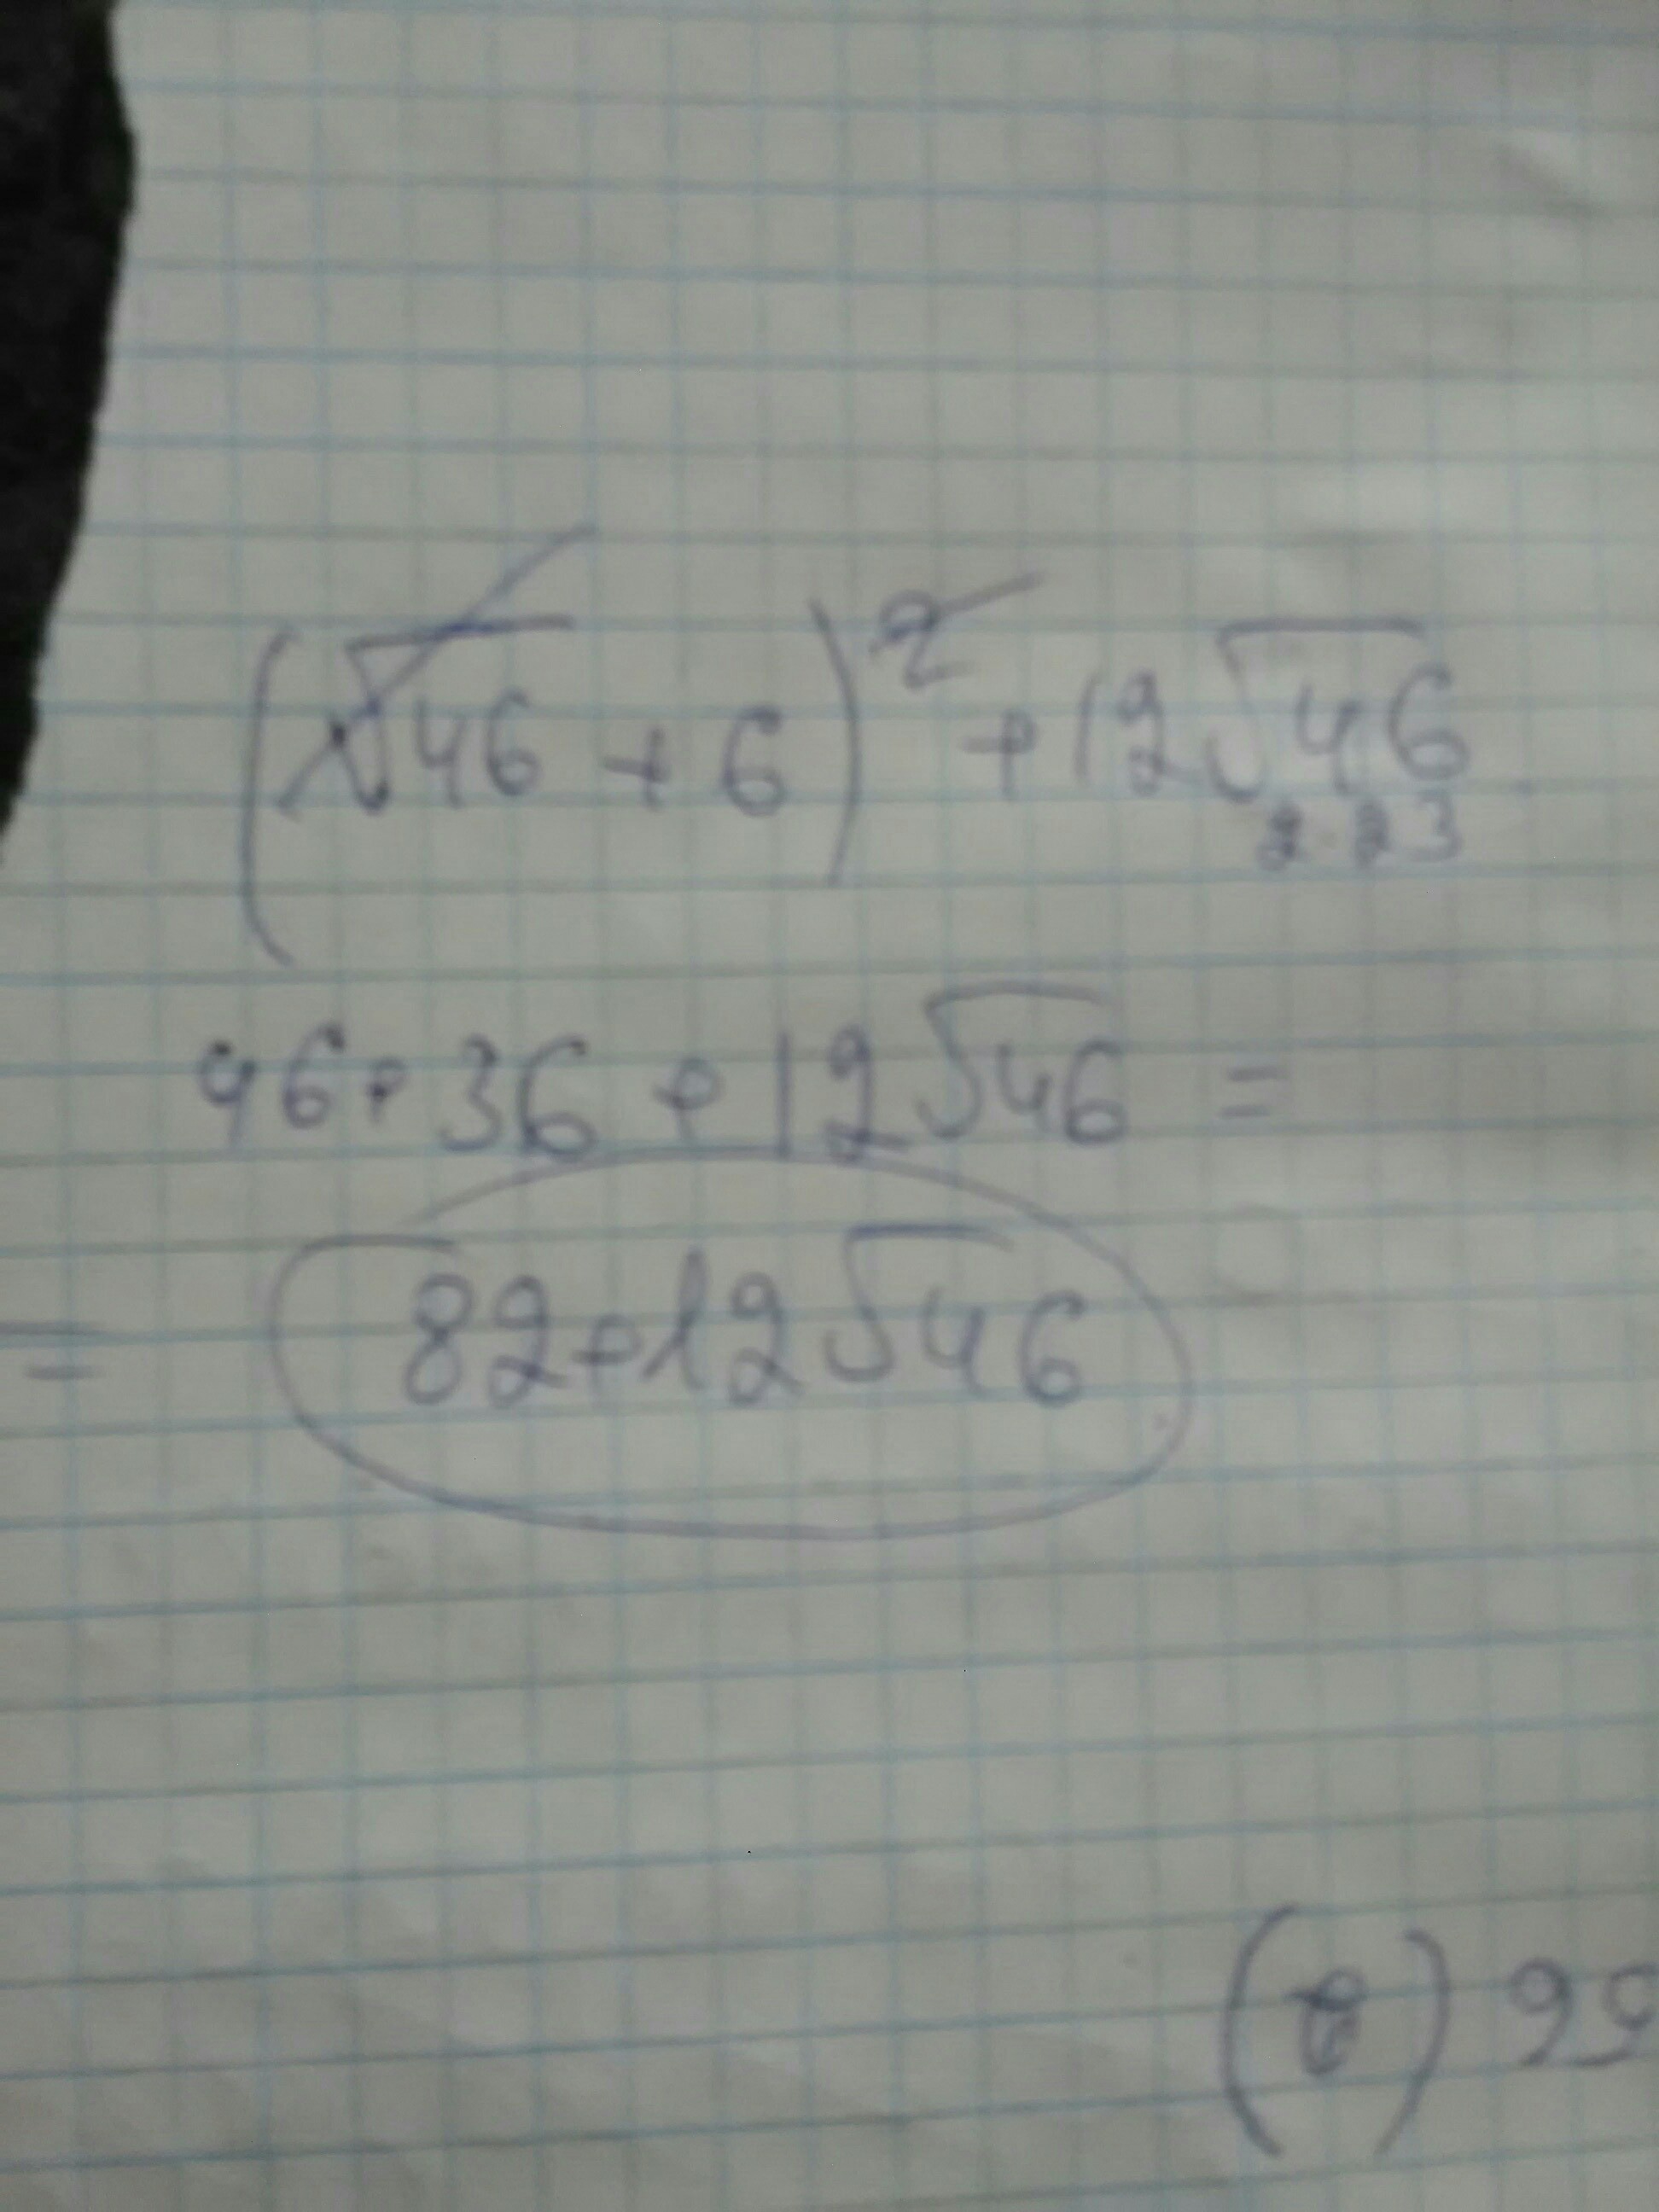 (√46 + 6)² + 12√46
2·23
46+36+12√46 =
= 82+12√46